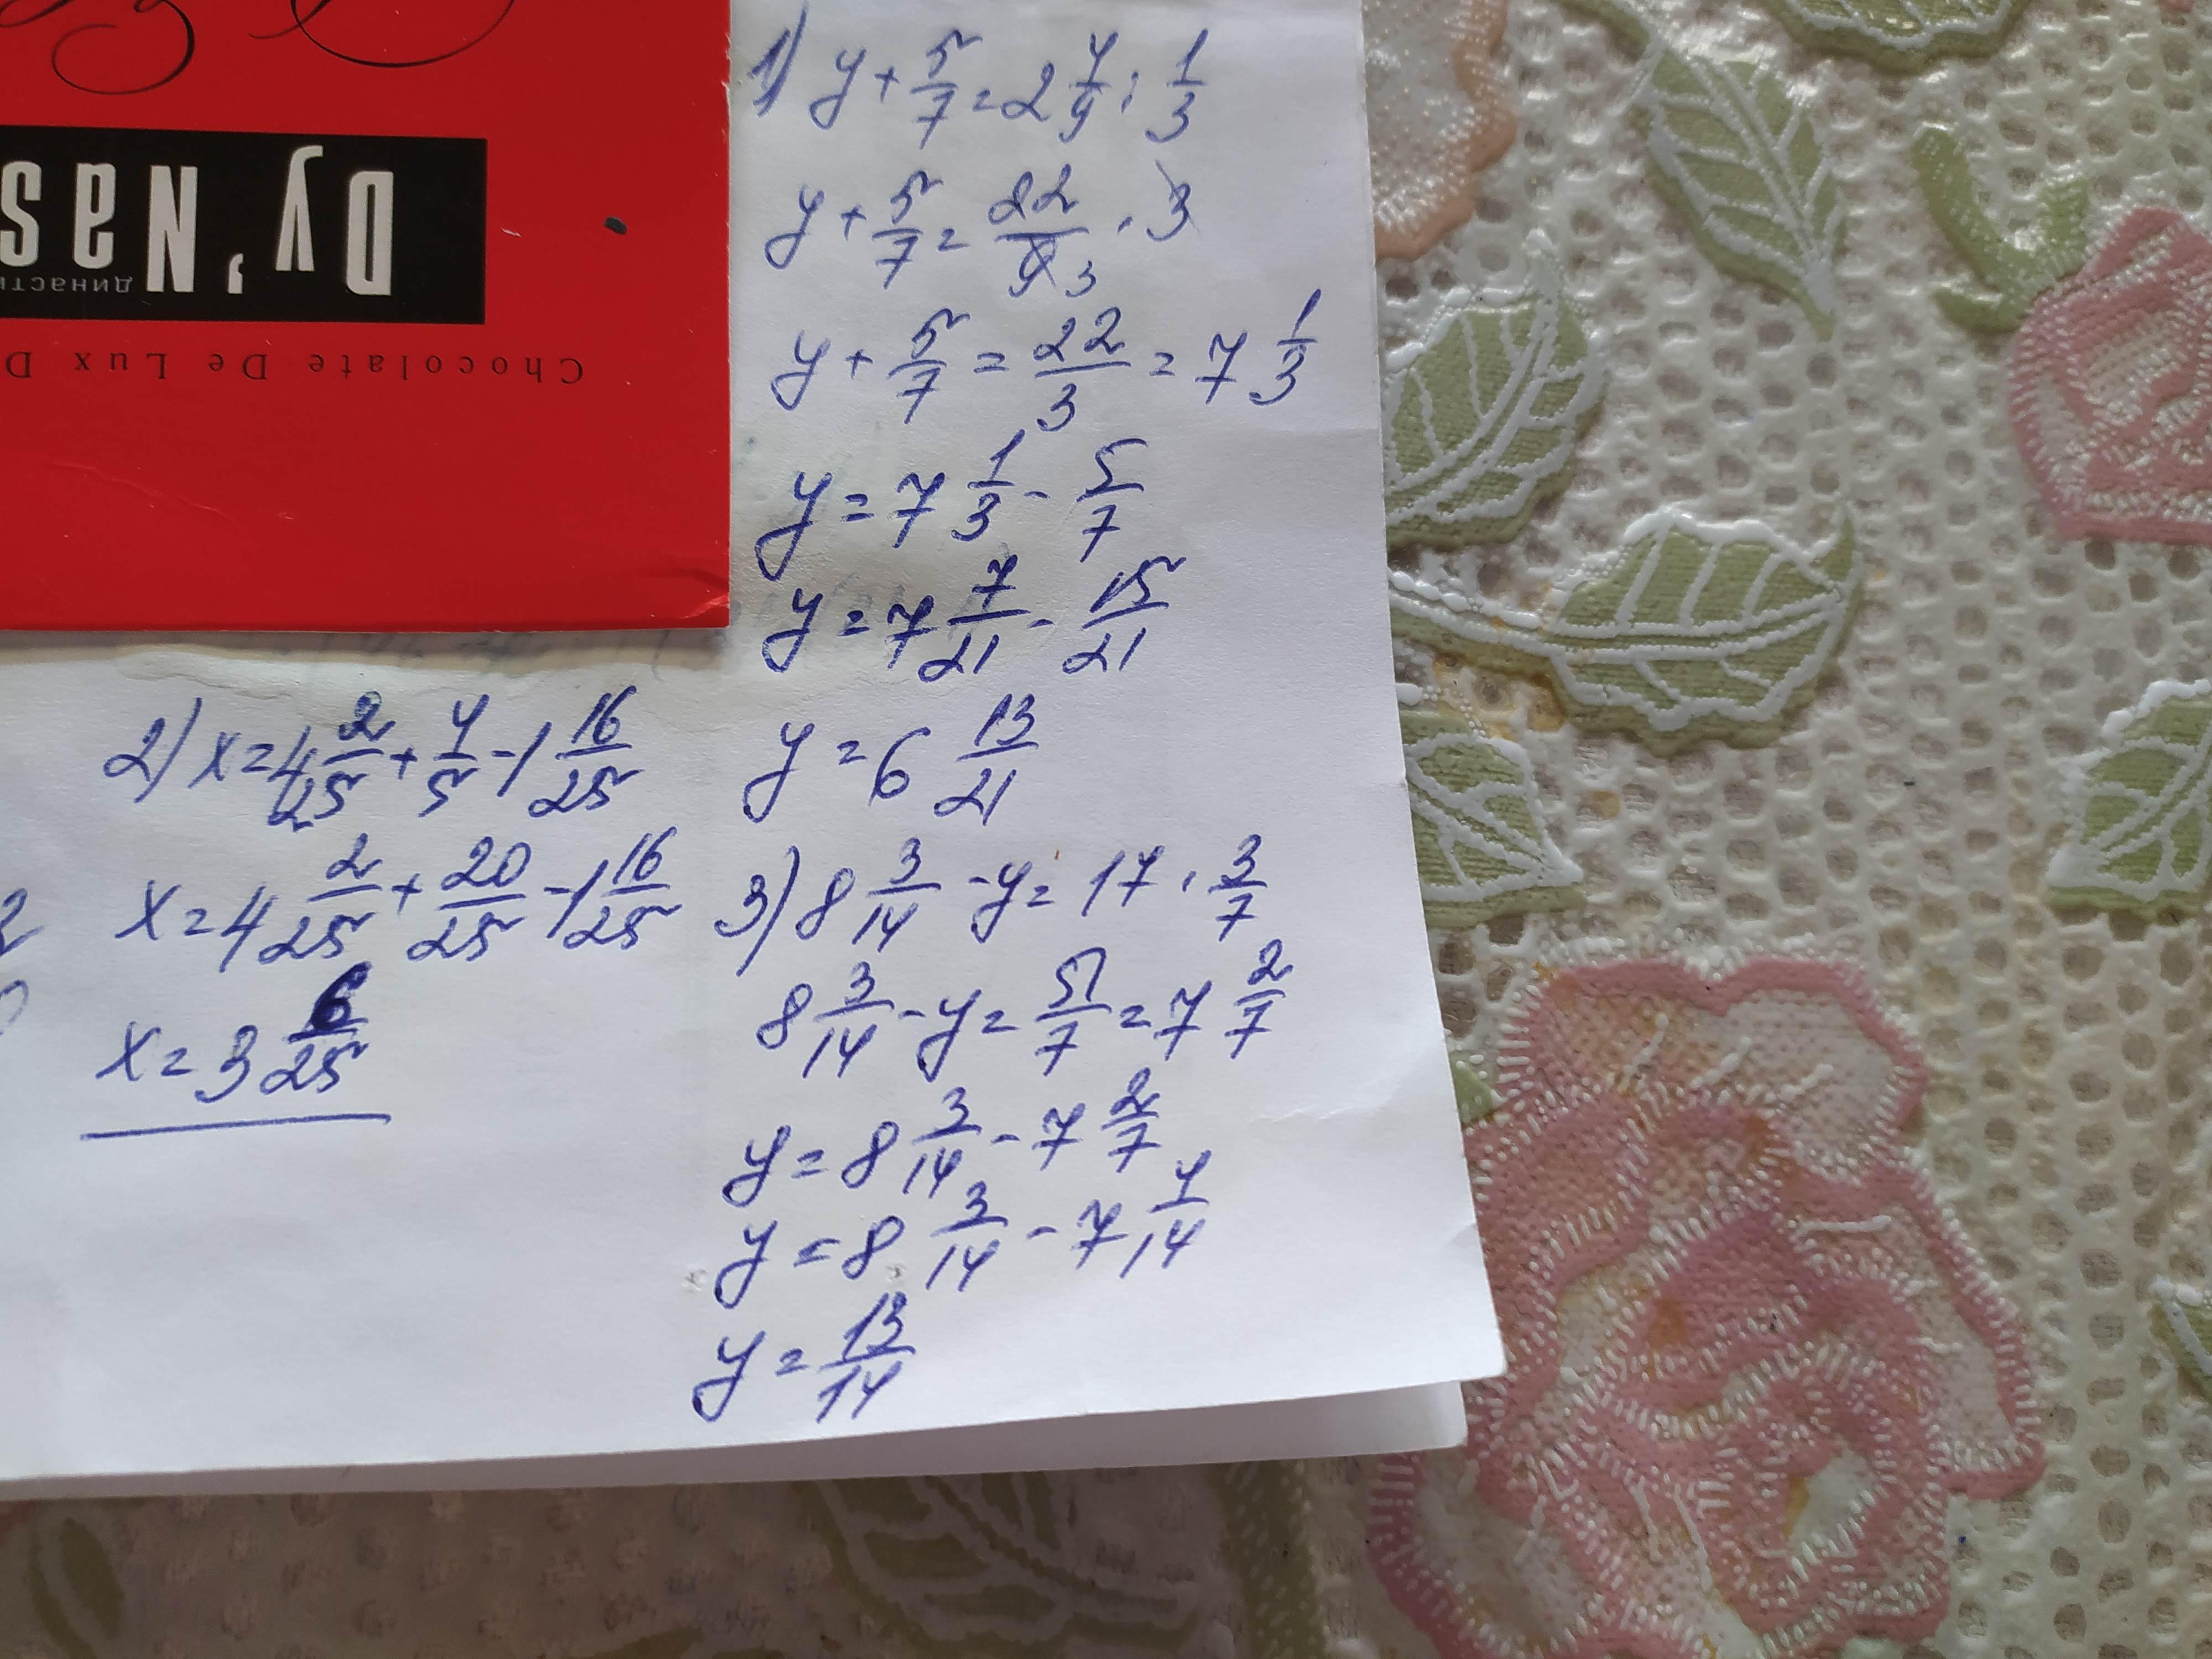 Dy'Nas
династи
Chocolate De Lux D
1) y + 5/7 = 2 4/9 : 1/3
y + 5/7 = 22/9 3 · 3
y + 5/7 = 22/3 = 7 1/3
y = 7 1/3 - 5/7
y = 7 7/21 - 15/21
y = 6 13/21
2) x = 4 2/25 + 4/5 - 1 16/25
x = 4 2/25 + 20/25 - 1 16/25
x = 3 6/25
3) 8 3/14 - y = 17 · 3/7
8 3/14 - y = 51/7 = 7 2/7
y = 8 3/14 - 7 2/7
y = 8 3/14 - 7 4/14
y = 13/14